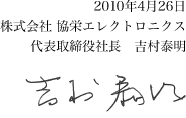 2010年4月26日
株式会社 協栄エレクトロニクス
代表取締役社長　吉村泰明
吉村泰明